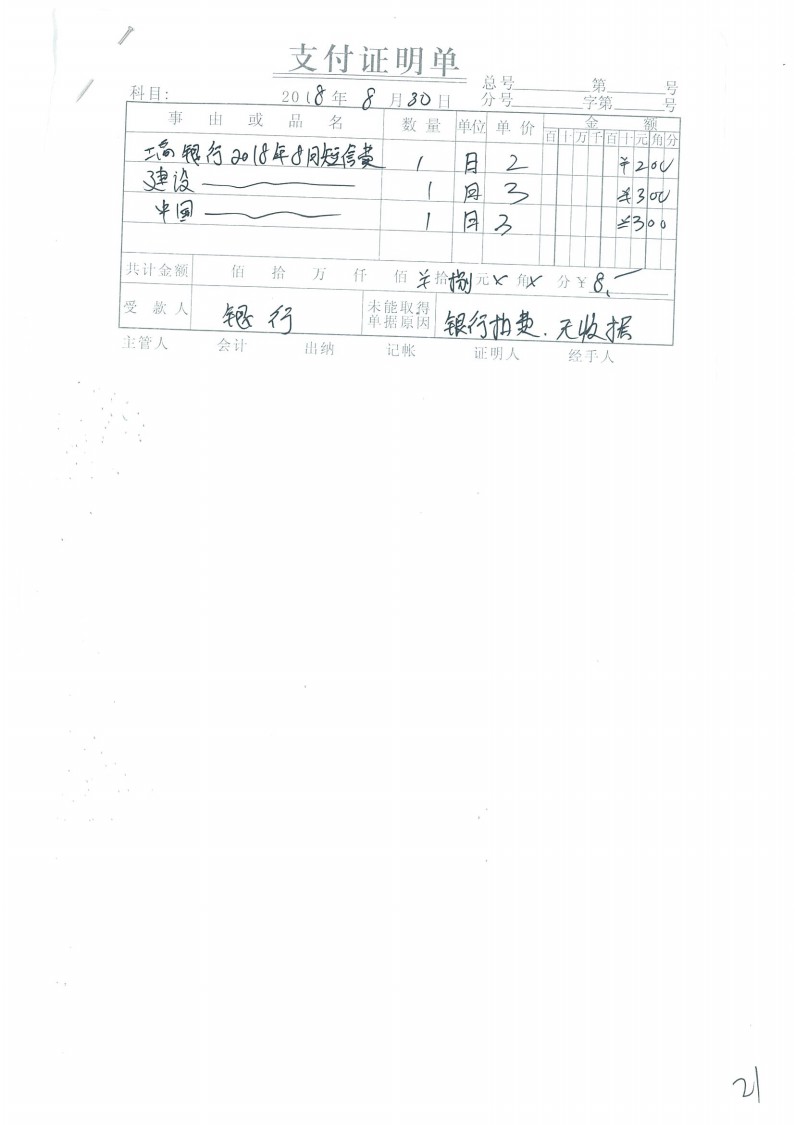 支付证明单
总号 第 号
科目: 2018年 8月30日 分号 字第 号
事由或品名 数量 单位 单价 金额
百十万千百十元角分
银行2018年8月短信费 1 月 2 ¥200
建设 1 月 3 ¥300
中国 1 月 3 ¥300
共计金额 佰 拾 万 仟 佰 ¥拾捌元×角×分 ¥8.
受款人 银行 未能取得单据原因 银行扣费.无收据
主管人 会计 出纳 记帐 证明人 经手人
21